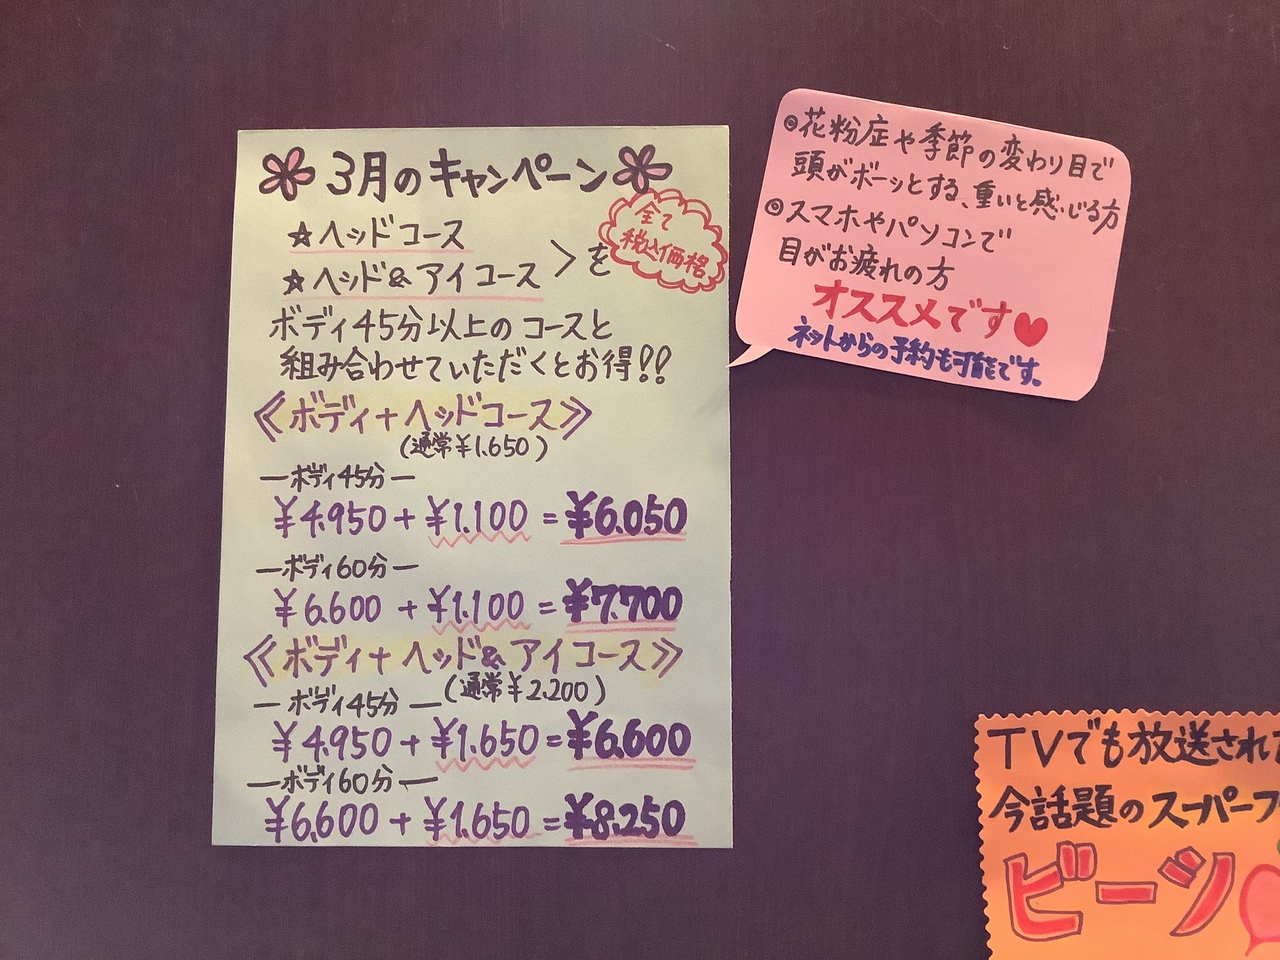 3月のキャンペーン
☆ヘッドコース
☆ヘッド&アイコース >を
全て
税込価格
ボディ45分以上のコースと
組み合わせていただくとお得!!
《ボディ+ヘッドコース》
(通常¥1.650)
-ボディ45分-
¥4.950+¥1.100=¥6.050
-ボディ60分-
¥6.600+¥1.100=¥7.700
《ボディ+ヘッド&アイコース》
(通常¥2.200)
-ボディ45分-
¥4.950+¥1.650=¥6.600
-ボディ60分-
¥6.600+¥1.650=¥8.250
◎花粉症や季節の変わり目で
頭がボーッとする、重いと感じる方
◎スマホやパソコンで
目がお疲れの方
オススメです♥
ネットからの予約も可能です。
TVでも放送され
今話題のスーパーフ
ビーツ